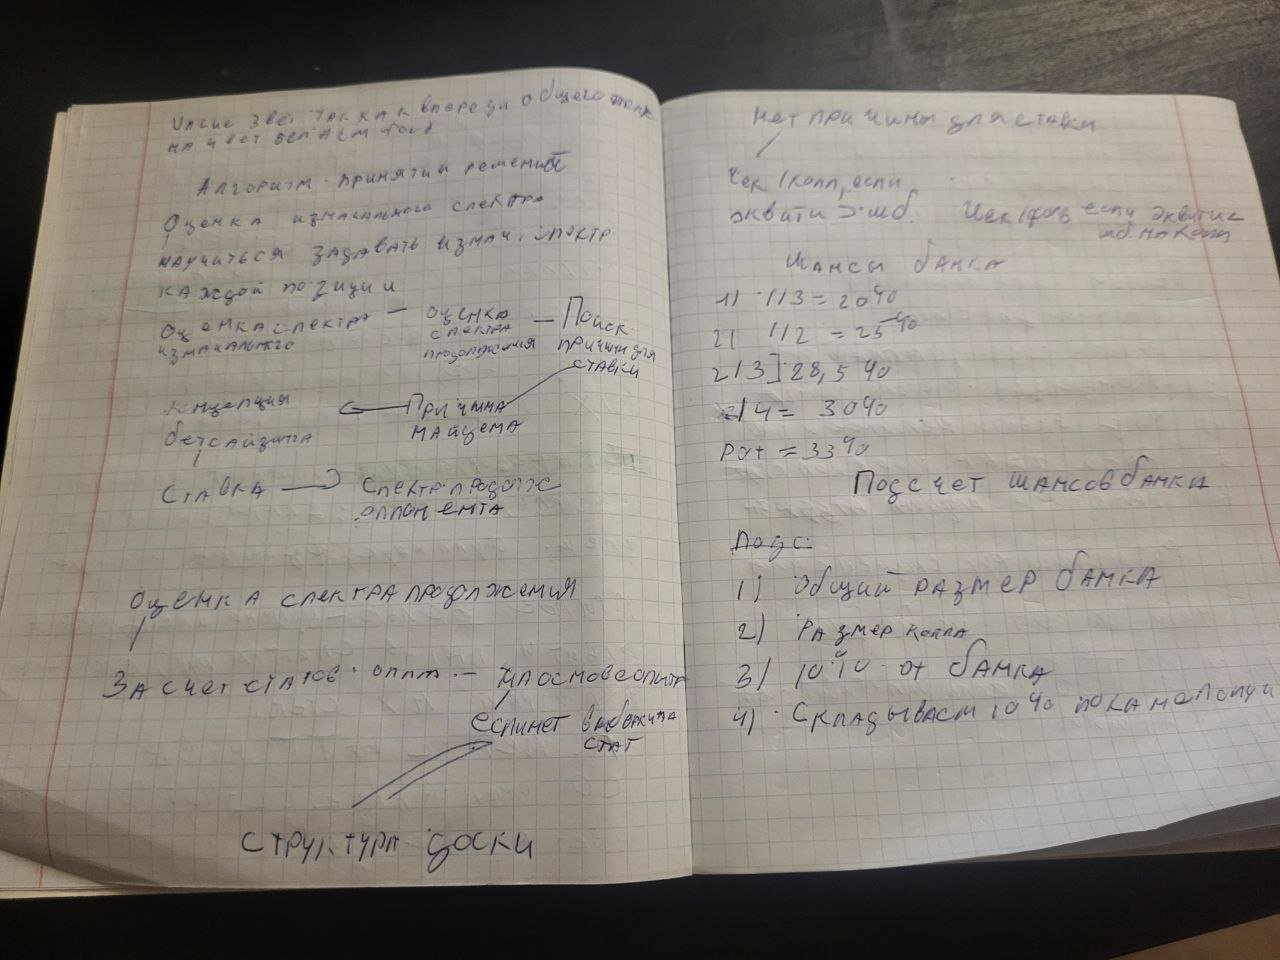 впереди общего
на
Алгоритм принятии решений
Оценка изначального спектра
научиться задавать изнач. спектр
каждой позиции
Оценка спектра – оценка – Поиск
изначального спектра причин для
продолжения ставки
Концепция Причина
бетсайзинга манцема
Ставка спектр продолж
оппонента
Оценка спектра продолжения
За счет статов оппт. – на основе опыта
если нет выборки на
стат
структура доски
Нет причины для ставки
Чек/колл, если
эквити > шб. Чек/фолд если эквити <
шб. на колл
Шансы банка
1) 1/3 = 20%
2) 1/2 = 25%
2/3] 28,5%
3/4 = 30%
Pot = 33%
Подсчет шансов банка
1) Общий размер банка
2) Размер колла
3) 10% от банка
4) Складываем 10% пока не получи